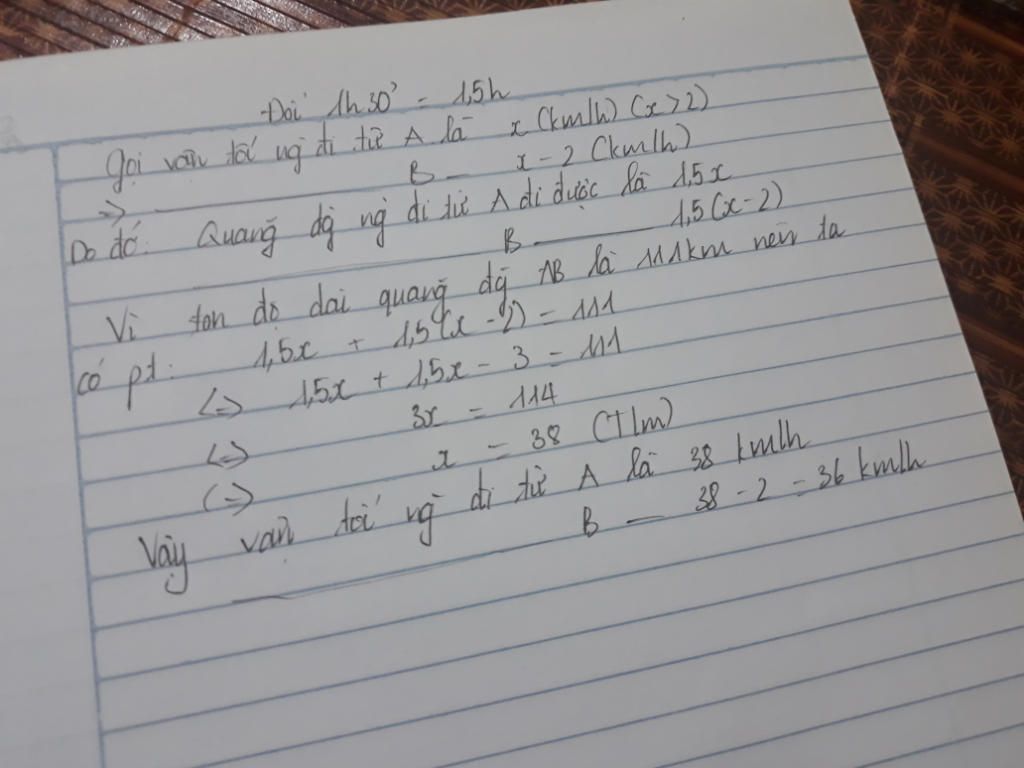 Đổi 1h30' = 1,5h
Gọi vận tốc ng đi từ A là x (km/h) (x > 2)
=> ——— B — x - 2 (km/h)
Do đó: Quãng đg ng đi từ A đi được là 1,5x
——— B ——— 1,5(x - 2)
Vì tổn độ dài quãng đg AB là 111km nên ta
có pt: 1,5x + 1,5(x - 2) = 111
<=> 1,5x + 1,5x - 3 = 111
<=> 3x = 114
<=> x = 38 (Tlm)
Vậy vận tốc ng đi từ A là 38 km/h
——— B — 38 - 2 = 36 km/h